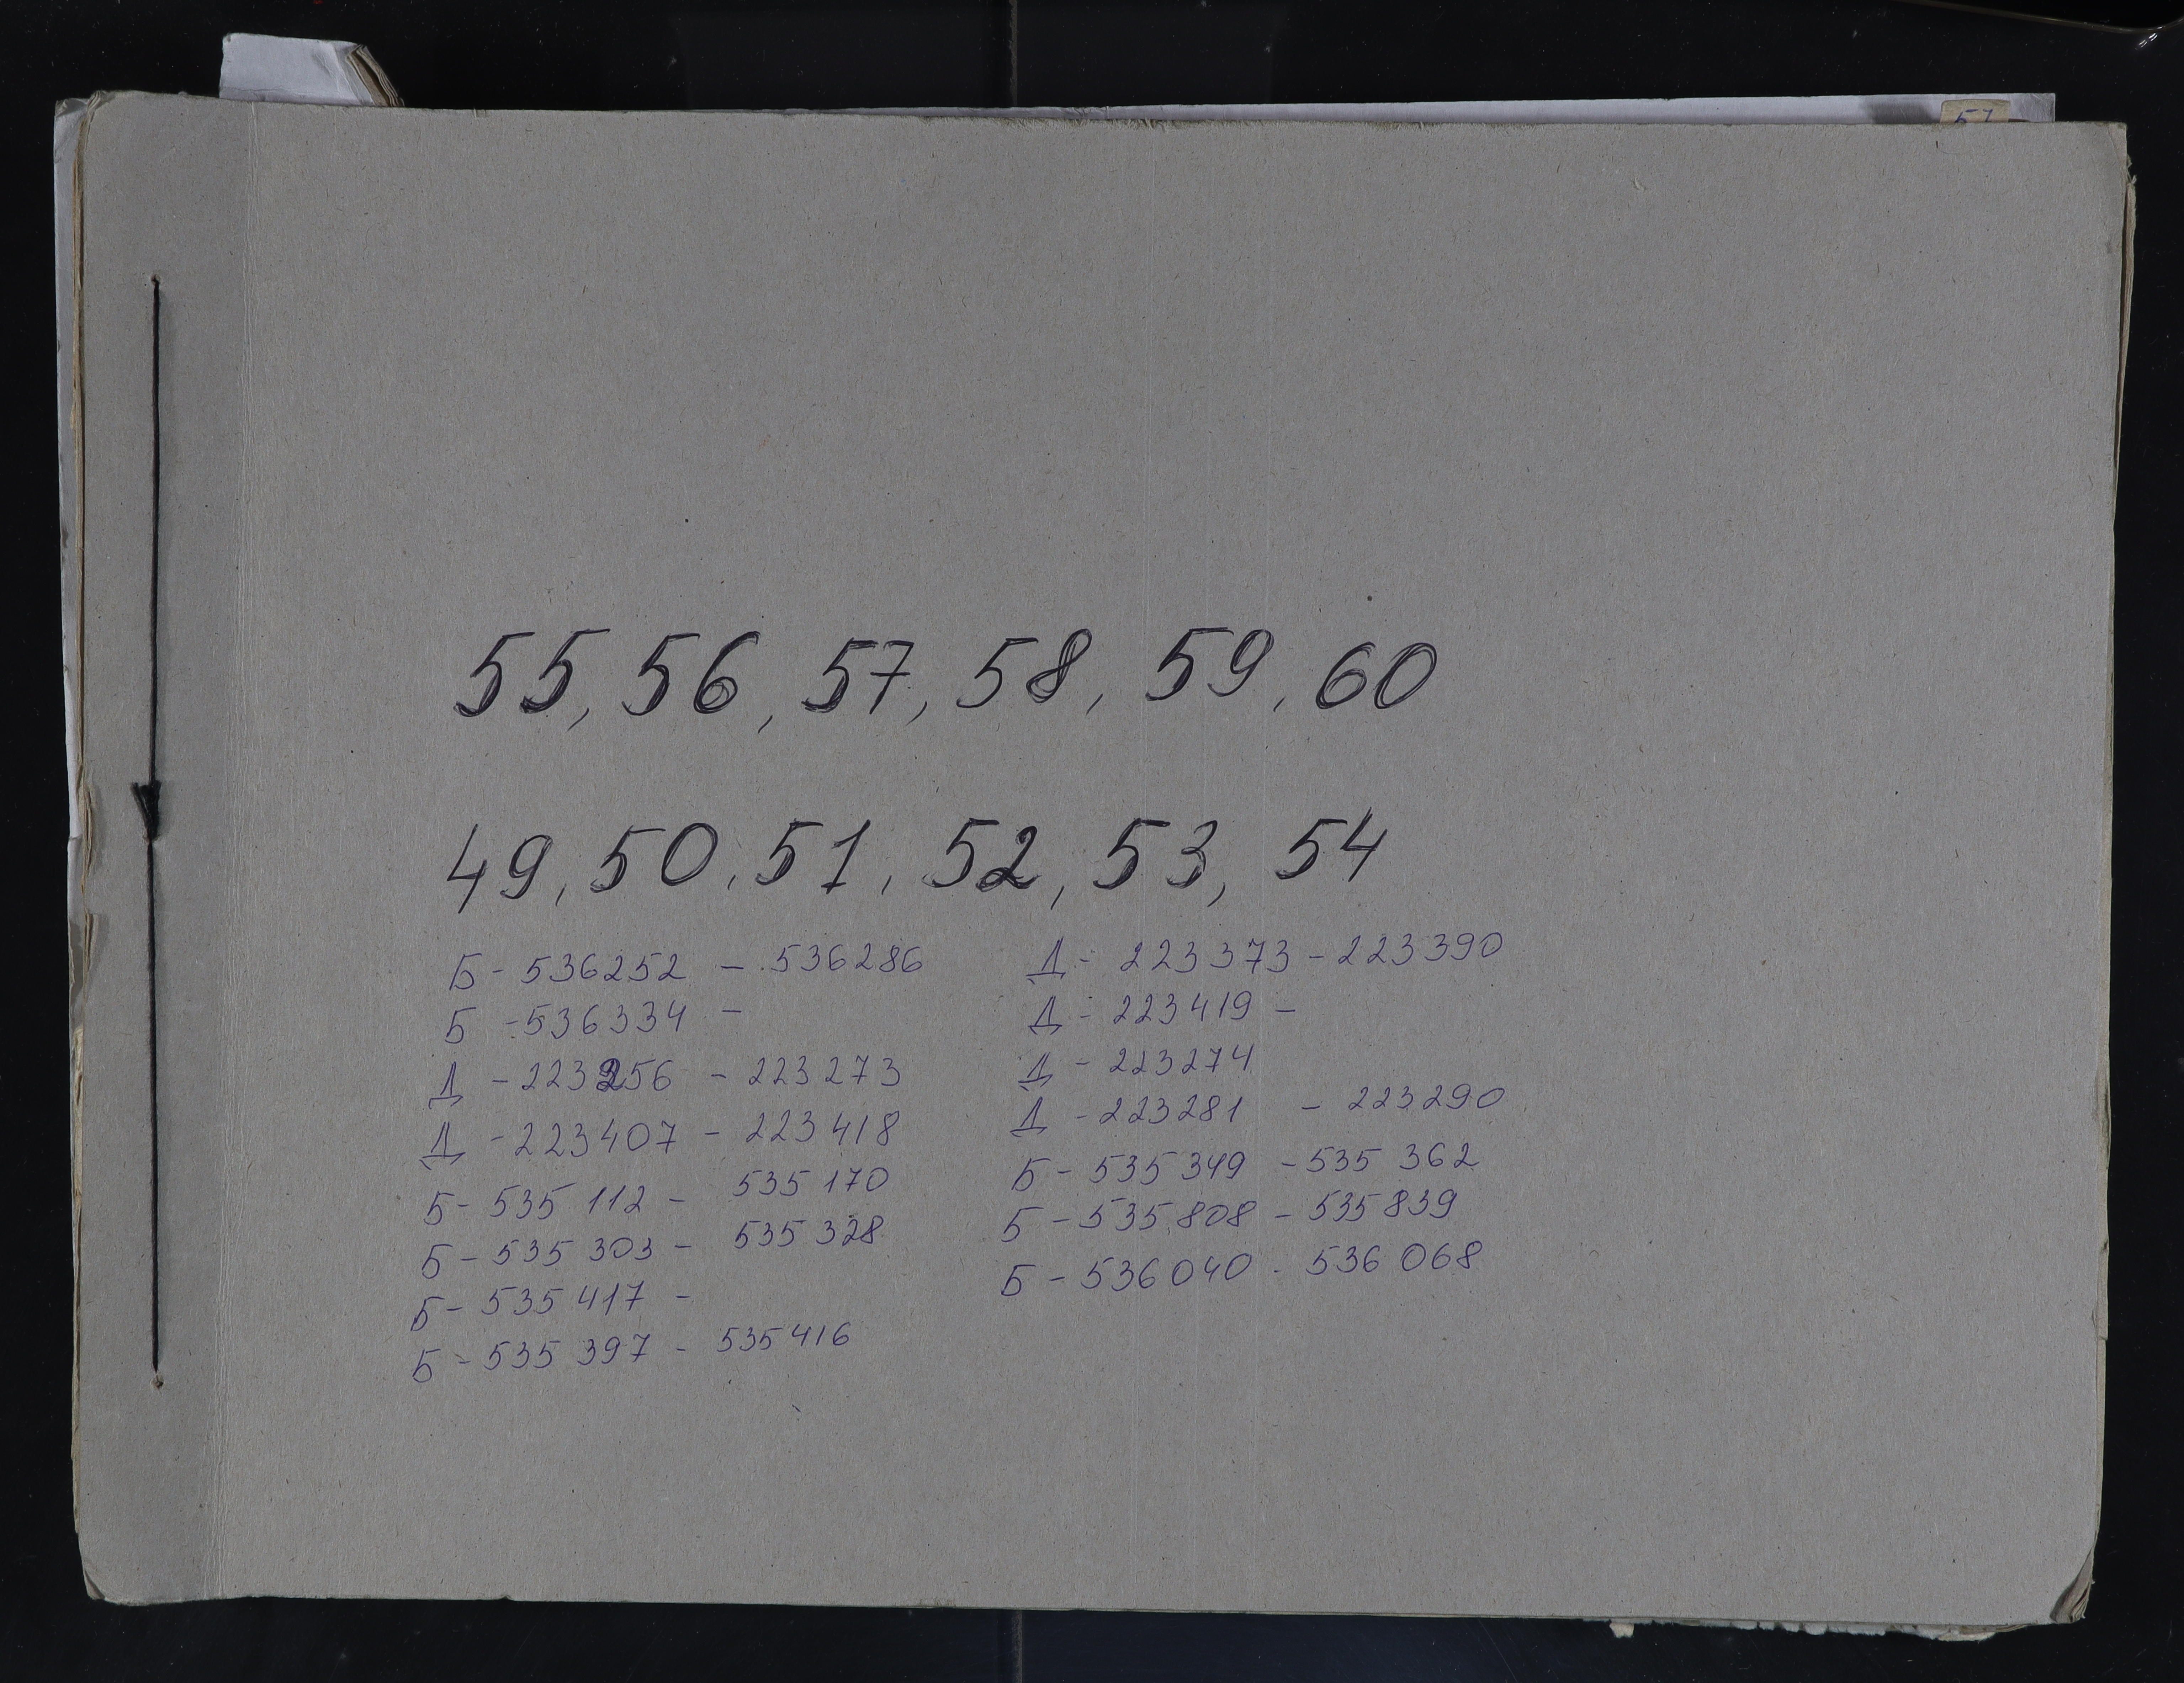 55, 56, 57, 58, 59, 60
49, 50, 51, 52, 53, 54
Б - 536252 - 536286
Б - 536334 -
Д - 223256 - 223273
Д - 223407 - 223418
Б - 535 112 - 535 170
Б - 535 303 - 535 328
Б - 535 417 -
Б - 535 397 - 535416
Д - 223373 - 223390
Д - 223419 -
Д - 223274
Д - 223281 - 223290
Б - 535 349 - 535 362
Б - 535 808 - 535839
Б - 536040 - 536 068